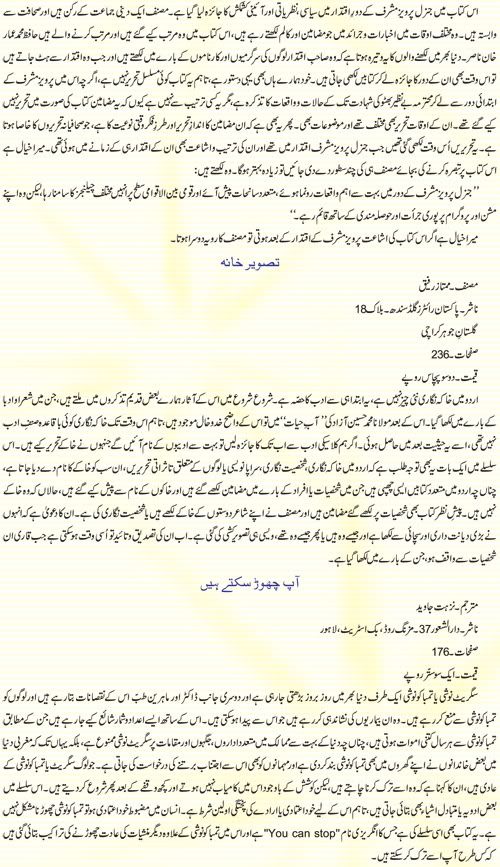 اس کتاب میں جنرل پرویز مشرف کے دورِ اقتدار میں سیاسی، نظریاتی اور آئینی کشمکش کا جائزہ لیا گیا ہے۔ مصنف ایک دینی جماعت کے رکن ہیں اور صحافت سے
وابستہ ہیں۔ وہ مختلف اوقات میں اخبارات و جرائد میں جو مضامین اور کالم لکھتے رہے ہیں، اس کتاب میں وہ مرتب کیے گئے ہیں اور مرتب کرنے والے ہیں حافظ محمد عمار
خان ناصر۔ دنیا بھر میں لکھنے والوں کا یہ وتیرہ ہوتا ہے کہ وہ صاحبِ اقتدار لوگوں کی سرگرمیوں اور کارناموں کے بارے میں لکھتے ہیں اور جب وہ اقتدار سے ہٹ جاتے ہیں
تو اس وقت بھی ان کے دور کا جائزہ لے کر کتابیں لکھی جاتی ہیں۔ خود ہمارے ہاں بھی یہی دستور ہے، تاہم یہ کتاب کوئی مسلسل تحریر نہیں ہے، اگرچہ اس میں پرویز مشرف کے
ابتدائی دور سے لے کر محترمہ بے نظیر بھٹو کی شہادت تک کے حالات و واقعات کا تذکرہ ہے، مگر یہ کسی ترتیب سے نہیں ہے کیوں کہ یہ مضامین کتاب کی صورت میں تحریر نہیں
کیے گئے تھے۔ ان کے اوقات تحریر بھی مختلف تھے اور موضوعات بھی۔ پھر یہ بھی ہے کہ ان مضامین کا اندازِ تحریر اور طرزِ فکر وقتی نوعیت کا ہے، جو صحافیانہ تحریروں کا خاصا ہوتا
ہے۔ یہ تحریریں اُس وقت لکھی گئی تھیں جب جنرل پرویز مشرف اقتدار میں تھے اور ان کی ترتیب و اشاعت بھی ان کے اقتدار ہی کے زمانے میں ہوئی تھی۔ میرا خیال ہے
کہ اس کتاب پر تبصرہ کرنے کی بجائے مصنف ہی کی چند سطور دے دی جائیں تو زیادہ بہتر ہوگا۔ وہ لکھتے ہیں:
’’جنرل پرویز مشرف کے دور میں بہت سے اہم واقعات رونما ہوئے، متعدد سانحات پیش آئے اور قومی و بین الاقوامی سطح پر انہیں مختلف چیلنجز کا سامنا رہا، لیکن وہ اپنے
مشن اور پروگرام پر پوری جرأت اور حوصلہ مندی کے ساتھ قائم رہے۔‘‘
میرا خیال ہے اگر اس کتاب کی اشاعت پرویز مشرف کے اقتدار کے بعد ہوتی تو مصنف کا رویہ دوسرا ہوتا۔
تصویر خانہ
مصنف۔ ممتاز رفیق
ناشر۔ پاکستان رائٹرز گلڈ سندھ۔ بلاک 18
گلستانِ جوہر کراچی
صفحات۔ 236
قیمت۔ دو سو پچاس روپے
اردو میں خاکہ نگاری نئی چیز نہیں ہے، یہ ابتدا ہی سے ادب کا حصہ ہے۔ شروع شروع میں اس کے آثار ہمارے بعض قدیم تذکروں میں ملتے ہیں، جن میں شعرا و ادبا
کے بارے میں لکھا گیا۔ اس کے بعد مولانا محمد حسین آزاد کی ’’آبِ حیات‘‘ میں تو اس کے واضح خدوخال موجود ہیں، تاہم اس وقت تک خاکہ نگاری کوئی باقاعدہ صنفِ ادب
نہیں تھی، اسے یہ حیثیت بعد میں حاصل ہوئی۔ اگر ہم کلاسیکی ادب سے اب تک کا جائزہ لیں تو بہت سے ادیبوں کے نام آئیں گے جنہوں نے خاکے تحریر کیے ہیں۔ اس
سلسلے میں ایک بات یہ بھی توجہ طلب ہے کہ اردو میں خاکہ نگاری، شخصیت نگاری، سراپا نویسی یا لوگوں کے متعلق تاثراتی تحریریں، ان سب کو خاکے کا نام دے دیا جاتا ہے،
چناں چہ اردو میں متعدد کتابیں ایسی چھپی ہیں جن میں شخصیات یا افراد کے بارے میں مضامین لکھے گئے ہیں اور خاکوں کے نام سے پیش کیے گئے ہیں، حالاں کہ وہ خاکے
نہیں ہیں۔ پیش نظر کتاب بھی شخصیات پر لکھے گئے مضامین ہیں اور مصنف نے اپنے شاعر دوستوں کے خاکے لکھے ہیں یا شخصیت نگاری کی ہے۔ ان کا دعویٰ ہے کہ انہوں
نے بڑی دیانت داری اور سچائی سے لکھا ہے اور جیسے وہ ہیں یا پھر جیسے وہ تھے، ویسی ہی تصویر کشی کی گئی ہے۔ اب ان کی تصدیق و تائید تو اُسی وقت ہوسکتی ہے جب قاری ان
شخصیات سے واقف ہو، جن کے بارے میں لکھا گیا ہے۔
آپ چھوڑ سکتے ہیں
مترجم۔ نزہت جاوید
ناشر۔ دارالشعور 37۔ مزنگ روڈ، بک اسٹریٹ، لاہور
صفحات۔ 176
قیمت۔ ایک سو ستر روپے
سگریٹ نوشی یا تمباکو نوشی ایک طرف دنیا بھر میں روز بروز بڑھتی جارہی ہے اور دوسری جانب ڈاکٹر اور ماہرینِ طبّ اس کے نقصانات بتارہے ہیں اور لوگوں کو
تمباکو نوشی سے منع کررہے ہیں۔ وہ ان بیماریوں کی نشاندہی کررہے ہیں جو اس سے پیدا ہوسکتی ہیں۔ اس کے ساتھ ایسے اعداد و شمار شائع کیے جارہے ہیں جن کے مطابق
تمباکو نوشی سے ہر سال کتنی اموات ہوتی ہیں، چناں چہ دنیا کے بہت سے ممالک میں متعدد اداروں، جگہوں اور مقامات پر سگریٹ نوشی ممنوع ہے، بلکہ یہاں تک کہ مغربی دنیا
میں بعض خاندانوں نے اپنے گھروں میں بھی تمباکو نوشی بند کر دی ہے اور مہمانوں کو بھی اس سے اجتناب برتنے کی درخواست کی جاتی ہے۔ جو لوگ سگریٹ یا تمباکو نوشی کے
عادی ہیں، ان کا کہنا ہے کہ وہ اسے ترک کرنا چاہتے ہیں، لیکن کوشش کے باوجود اس میں کامیاب نہیں ہوتے اور کچھ وقفے کے بعد پھر شروع کردیتے ہیں۔ اس سلسلے میں
بعض ادویہ یا متبادل اشیاء بھی بتائی جاتی ہیں، تاہم اس کے لیے خود اعتمادی یا ارادے کی پختگی اولین شرط ہے۔ انسان میں مضبوط خود اعتمادی ہو تو تمباکو نوشی چھوڑنا مشکل نہیں
ہے۔ یہ کتاب بھی اسی سلسلے کی ہے جس کا انگریزی نام "You can stop" ہے اور اس میں تمباکو نوشی کے علاوہ دیگر منشیات کی عادت چھوڑنے کی تراکیب بتائی گئی ہیں
کہ کس طرح آپ اسے ترک کرسکتے ہیں۔